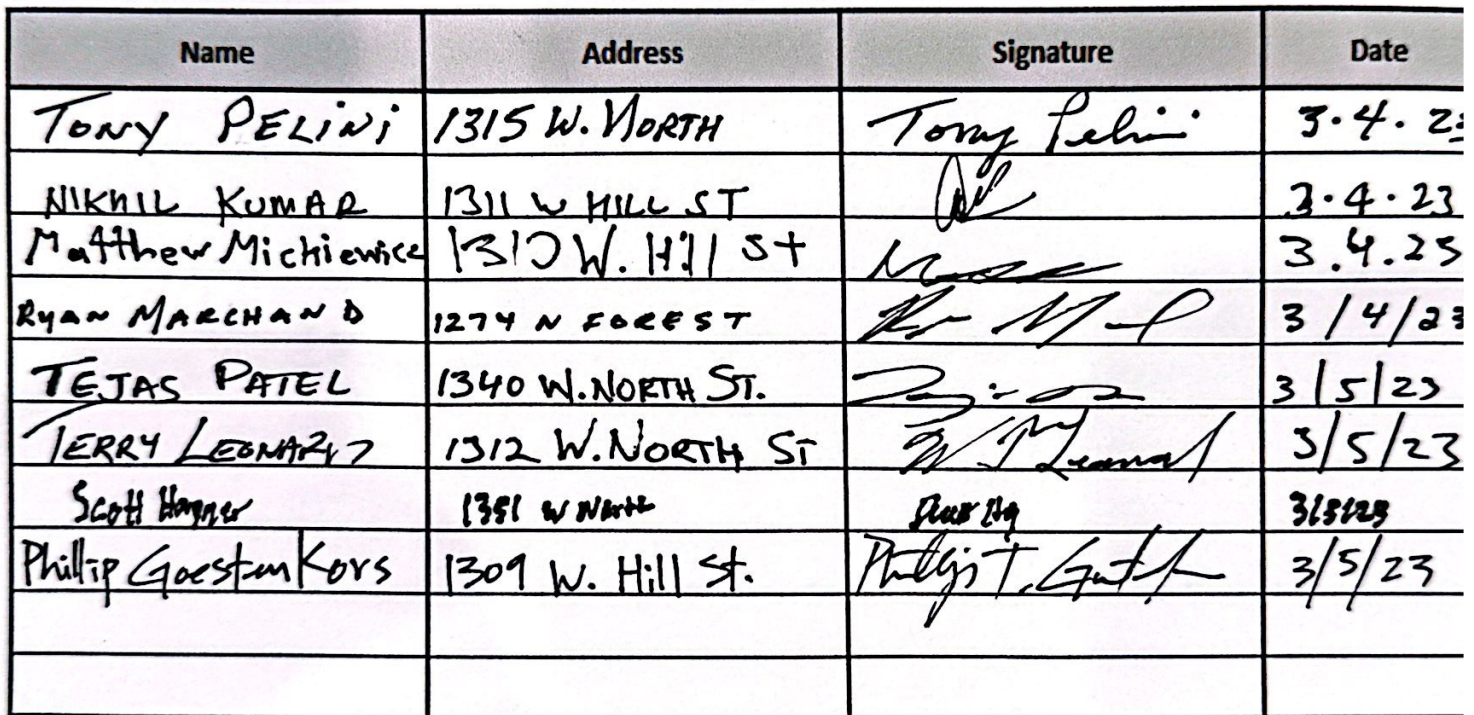 Name Address Signature Date
TONY PELINI 1315 W. NORTH Tony Pelini 3.4.23
NIKHIL KUMAR 1311 W HILL ST 3.4.23
Matthew Mickiewicz 1310 W. Hill St 3.4.23
RYAN MARCHAND 1274 N FOREST 3/4/23
TEJAS PATEL 1340 W. NORTH ST. 3/5/23
TERRY LEONARD 1312 W. NORTH ST 3/5/23
Scott 1351 W North 3/5/23
Phillip Goestenkors 1309 W. Hill St. 3/5/23